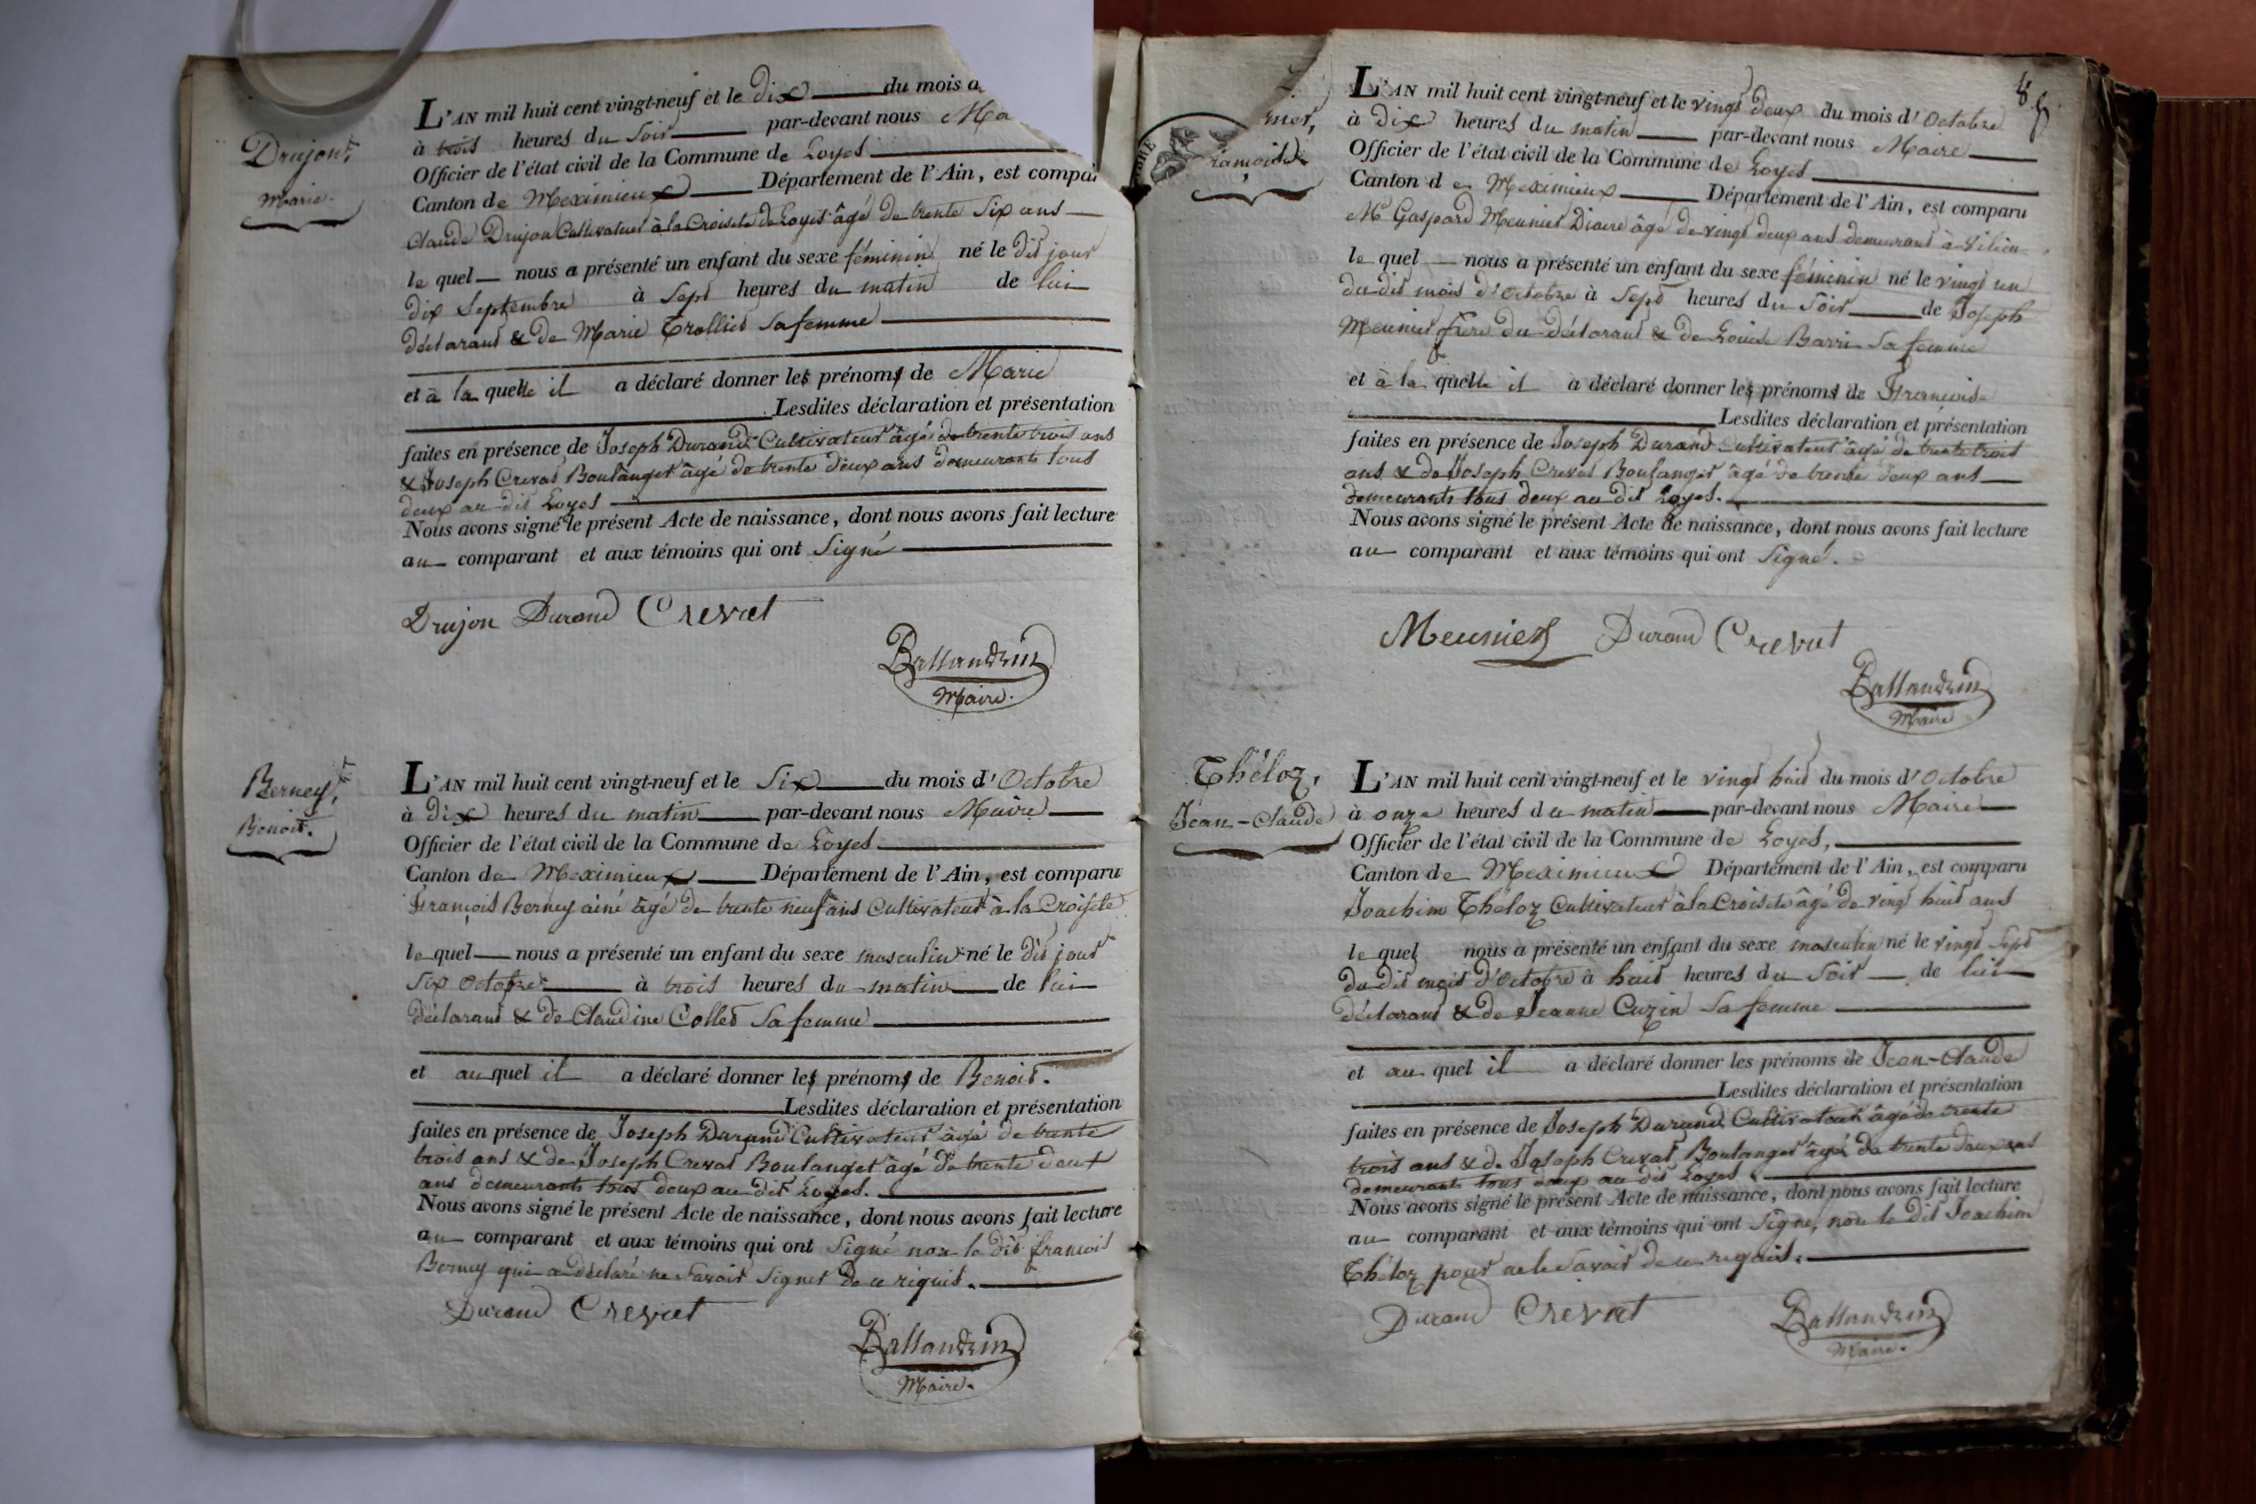 Drujon,
Marie.
L'AN mil huit cent vingt-neuf et le dix du mois
à trois heures du soir par-devant nous Ma
Officier de l'état civil de la Commune de Loyes
Canton de Meximieux Département de l'Ain, est compa
Claude Drujon Cultivateur à la Croisete de Loyes âgé de trente six ans
le quel nous a présenté un enfant du sexe féminin né le dit jour
dix Septembre à Sept heures du matin de lui
déclarant & de Marie Trollied sa femme
et à la quelle il a déclaré donner les prénoms de Marie
Lesdites déclaration et présentation
faites en présence de Joseph Durand Cultivateur âgé de trente trois ans
& Joseph Crevat Boulanger âgé de trente deux ans demeurants tous
deux au dit Loyes
Nous avons signé le présent Acte de naissance, dont nous avons fait lecture
au comparant et aux témoins qui ont Signé
Drujon Durand Crevat
Ballandrin
Maire.
Berney,
Benoit.
L'AN mil huit cent vingt-neuf et le Six du mois d'Octobre
à dix heures du matin par-devant nous Maire
Officier de l'état civil de la Commune de Loyes
Canton de Meximieux Département de l'Ain, est comparu
François Berney ainé âgé de trente neuf ans Cultivateur à la Croisete
le quel nous a présenté un enfant du sexe masculin né le dit jour
Six Octobre à trois heures du matin de lui
déclarant & de Claudine Collet sa femme
et au quel il a déclaré donner les prénoms de Benoit.
Lesdites déclaration et présentation
faites en présence de Joseph Durand Cultivateur âgé de trente
trois ans & de Joseph Crevat Boulanger âgé de trente deux
ans demeurants tous deux au dit Loyes.
Nous avons signé le présent Acte de naissance, dont nous avons fait lecture
au comparant et aux témoins qui ont Signé non le dit françois
Berney qui a déclaré ne Savoir Signer de ce réquis.
Durand Crevat
Ballandrin
Maire.
8
nier,
rançoise
L'AN mil huit cent vingt-neuf et le vingt deux du mois d'Octobre
à dix heures du matin par-devant nous Maire
Officier de l'état civil de la Commune de Loyes
Canton de Meximieux Département de l'Ain, est comparu
Mr Gaspard Meunier Diacre âgé de vingt deux ans demeurant à
le quel nous a présenté un enfant du sexe féminin né le vingt un
du dit mois d'Octobre à Sept heures du Soir de Joseph
Meunier frère du déclarant & de Louise Barri sa femme
et à la quelle il a déclaré donner les prénoms de Françoise
Lesdites déclaration et présentation
faites en présence de Joseph Durand Cultivateur âgé de trente trois
ans & de Joseph Crevat Boulanger âgé de trente deux ans
demeurants tous deux au dit Loyes.
Nous avons signé le présent Acte de naissance, dont nous avons fait lecture
au comparant et aux témoins qui ont Signé.
Meunier Durand Crevat
Ballandrin
Maire
Théloz,
Jean-Claude
L'AN mil huit cent vingt-neuf et le vingt huit du mois d'Octobre
à onze heures du matin par-devant nous Maire
Officier de l'état civil de la Commune de Loyes,
Canton de Meximieux Département de l'Ain, est comparu
Joachim Théloz Cultivateur à la Croisete âgé de vingt huit ans
le quel nous a présenté un enfant du sexe masculin né le vingt Sept
du dit mois d'Octobre à huit heures du Soir de lui
déclarant & de Jeanne Cuzin sa femme
et au quel il a déclaré donner les prénoms de Jean-Claude
Lesdites déclaration et présentation
faites en présence de Joseph Durand Cultivateur âgé de trente
trois ans & de Joseph Crevat Boulanger âgé de trente deux ans
demeurants tous deux au dit Loyes.
Nous avons signé le présent Acte de naissance, dont nous avons fait lecture
au comparant et aux témoins qui ont Signé, non le dit Joachim
Théloz pour ne le Savoir de ce requis.
Durand Crevat
Ballandrin
Maire.